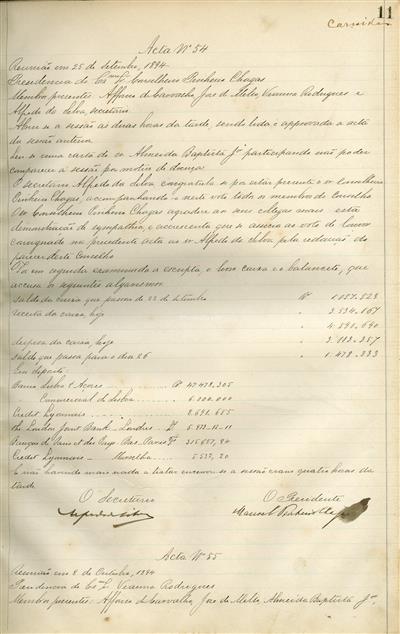 11
Acta Nº 54
Reunião em 25 de Setembro, 1894
Presidencia do Exmo Sr. Conselheiro Pinheiro Chagas
Membros presentes: Affonso de Carvalho, José de Mello, Vianna Rodrigues e
Alfredo da Silva, secretario
Abriu-se a sessão ás duas horas da tarde, sendo lida e approvada a acta
da sessão anterior
Leu-se uma carta do sr Almeida Baptista Jr participando não poder
comparecer á sessão por motivo de doença
O secretario Alfredo da Silva congratula-se por estar presente o sr Conselheiro
Pinheiro Chagas, acompanhando-o neste voto todos os membros do Conselho
O sr Conselheiro Pinheiro Chagas agradece aos seus collegas mais esta
demonstração de sympathia, e accrescenta que se associa ao voto de louvor
consignado na precedente acta ao sr Alfredo da Silva pela redacção do
parecer deste Conselho
Foi em seguida examinada a escripta e livro caixa e o balancete, que
accusa os seguintes algarismos
Saldo da caixa que passou de 22 de setembro
receita da caixa, hoje 3.534.167
4.591.690
despesa da caixa, hoje 3.113.357
Saldo que passa para o dia 26 1.478.333
Em deposito
Banco Lisboa & Açores 47.478.305
" Commercial de Lisboa 6.200.000
Credit Lyonnais 2.691.655
The London Joint Bank - Londres £ 5.873-12-11
Banque de Paris et des Pays Bas - Paris
Credit Lyonnais - Marselha 5537,20
E não havendo mais nada a tratar encerrou-se a sessão eram quatro horas da
tarde
O Secretario O Presidente
Alfredo da Silva Manoel Pinheiro Chagas
Acta Nº 55
Reunião em 2 de Outubro, 1894
Presidencia do Exmo Sr. Vianna Rodrigues
Membros presentes: Affonso de Carvalho, José de Mello, Almeida Baptista Jr,